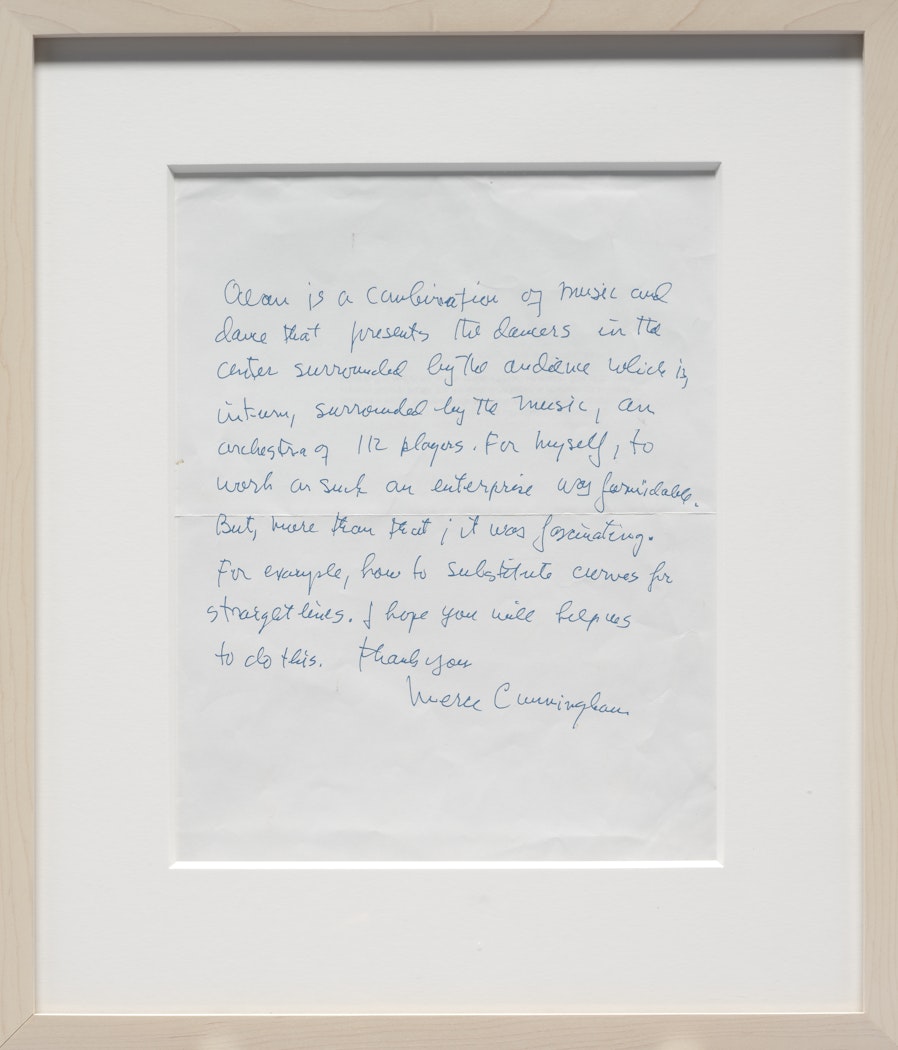 Ocean is a combination of music and
dance that presents the dancers in the
center surrounded by the audience which is,
in turn, surrounded by the music, an
orchestra of 112 players. For myself, to
work on such an enterprise was formidable.
But, more than that, it was fascinating.
For example, how to substitute curves for
straight lines. I hope you will help us
to do this. Thank you
Merce Cunningham